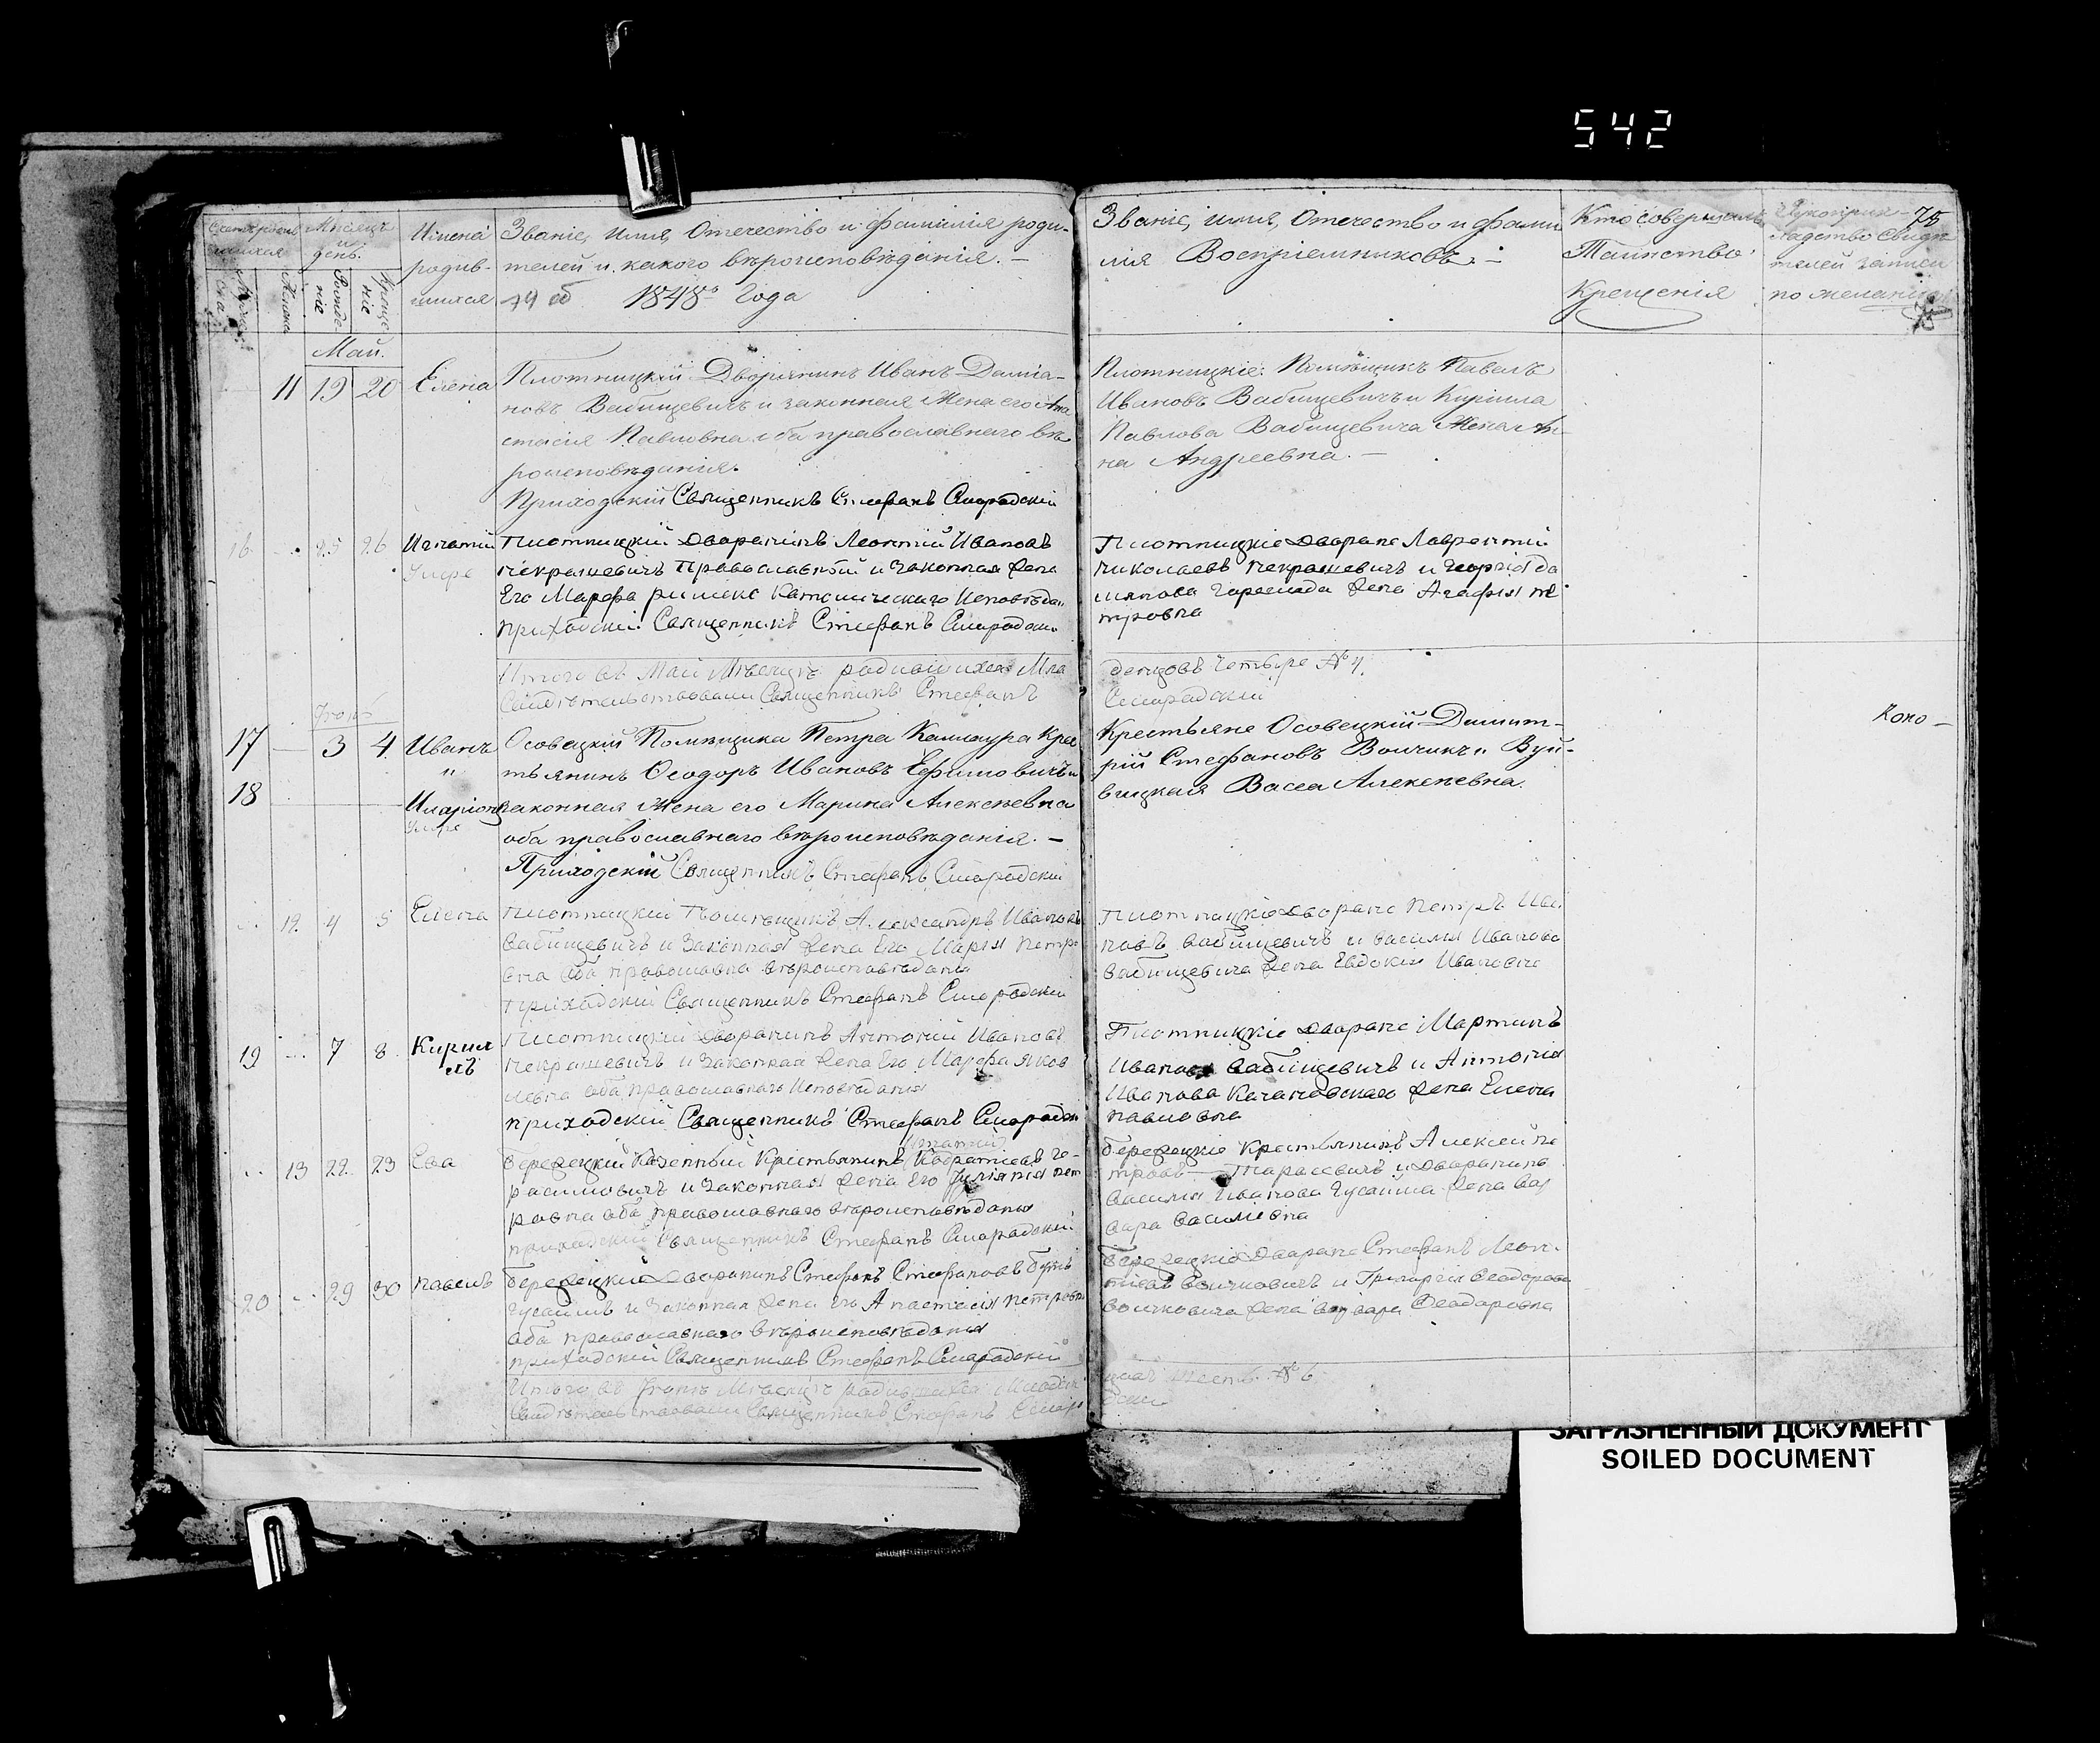 542
Счетъ родив
шихся
Мѣсяцъ
и
день.
Имена
родив-
шихся
Званіе, имя, Отечество и фамилія роди-
телей и, какого вѣроисповѣданія. —
1848го Года
Женска
Рожде-
ніе
Креще
ніе
Званіе, имя, Отечество и фами
лія Воспріемниковъ. —
Кто совершалъ
Таинство
Крещенія
Рукоприк-
ладство свидѣ
телей записи
по желанію
75
Май.
11 19 20 Елена
Плотницкій Дворянинъ Иванъ Даміа-
новъ Вабищевичъ и законная Жена его Ана
стасія Павловна оба православнаго вѣ
роисповѣданія.
Приходскій Священникъ Стефанъ Смародскій
Плотницкіе: Помѣщикъ Павелъ
Ивановъ Вабищевичъ и Кирила
Павлова Вабищевича Жена Ан-
на Андреевна. —
16 25 26 Игнатій
Умре
Плотницкій дворанинъ Леонтій Ивановъ
Некрашевичъ Православной и Законная Жена
Его Марфа римско Католическаго Исповѣдан
приходскій Священникъ Стефанъ Смародски
Плотницкіе дворане Лаврентій
Николаевъ Некрашевичъ и Георгія Да
міянова жена Агафія пе
тровна
Итого въ Маи Мѣсяцѣ радившихся Мла
Свидѣтельствовали Священникъ Стефанъ
денцовъ Четыре № 4.
Смародскій
Іюнь
17 — 3 4 Иванъ
"
18
Иларіонъ
Умре
Осовецкій Помѣщика Петра Каллаура Крес
тьянинъ Ѳеодоръ Ивановъ Ефимовичъ и
законная Жена его Марина Алексѣевна
оба православнаго вѣроисповѣданія. —
Приходскій Священникъ Стефанъ Смародскій
Крестьяне Осовецкій Димит-
рій Стефановъ Волчикъ и Вуй-
вицкая Васса Алексѣевна.
Коко —
12. 4 5 Елена
Плотницкій Помѣщикъ Александръ Ивановъ
Вабищевичъ и Законная Жена Его Марія Петро
вна оба православна вѣроисповѣданія
приходскій Священникъ Стефанъ Смародскій
Плотницкіе дворане Петръ Ива
новъ Вабищевичъ и Василія Иванова
Вабищевича Жена Евдокія Ивановна
19 7 8 Кирил
лъ
Плотницкій дворанинъ Антоній Ивановъ
Некрашевичъ и Законная Жена Его Марфа Яков
левна оба православнаго Исповѣданія
приходскій Священникъ Стефанъ Смародски
Плотницкіе дворане Мартинъ
Ивановъ Вабищевичъ и Антонія
Иванова Качановскаго Жена Елена
павловна
13 22. 23 Ева
Бережецкій Казенный Крестьянинъ Кодратіевъ Ге-
расимовичъ и Законная Жена Его Іуліянія пет
ровна оба православнаго вѣроисповѣданія
приходскій Священникъ Стефанъ Смародскій
Бережецкіе Крестьянинъ Алексей пе
тровъ Тарасевичъ и дворанинъ
Василія Иванова Гусаина Жена Вар
вара Василевна
20 29 30 павелъ
Бережецкій дворанинъ Стефанъ Стефановъ
и Законная Жена Его Анастасія петровна
оба православнаго вѣроисповѣданія
приходскій Священникъ Стефанъ Смародскій
Бережецкіе дворане Стефанъ Леон-
тіевъ Волчковичъ и Григорія Ѳеодорова
Волчковича Жена Варвара Ѳеодоровна
Итого въ Іюнѣ Мѣсяцѣ радившихся Младен
Свидѣтельствовали Священникъ Стефанъ Смаро
шесть № 6
дски
ЗАГРЯЗНЕННЫЙ ДОКУМЕНТ
SOILED DOCUMENT